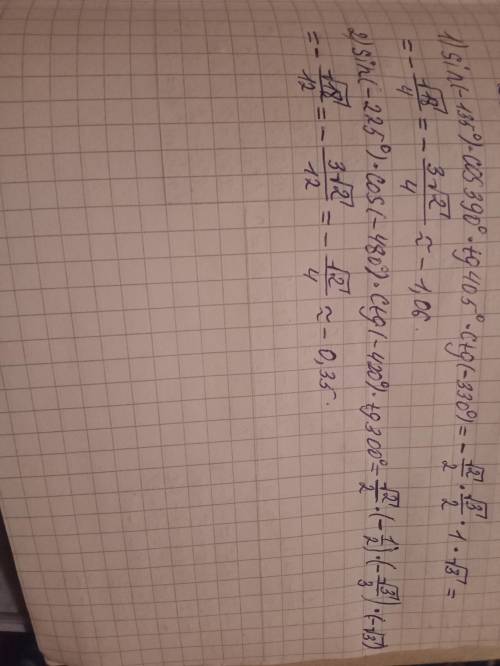 1) sin(-135°)·cos390°·tg405°·ctg(-330°) = -√2/2·√3/2·1·√3 =
= -√18/4 = -3√2/4 ≈ -1,06.
2) sin(-225°)·cos(-480°)·ctg(-420°)·tg300° = √2/2·(-1/2)·(-√3/3)·(-√3)
= -√18/12 = -3√2/12 = -√2/4 ≈ -0,35.